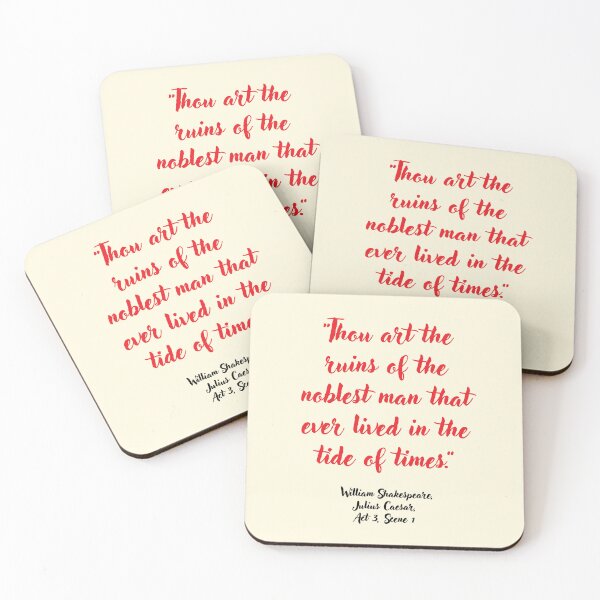 "Thou art the
ruins of the
noblest man that
in the
times."
"Thou art the
ruins of the
noblest man that
ever lived in the
tide of times."
"Thou art the
ruins of the
noblest man that
ever lived in the
tide of
William
Julius
Act 3,
"Thou art the
ruins of the
noblest man that
ever lived in the
tide of times."
William Shakespeare,
Julius Caesar,
Act 3, Scene 1